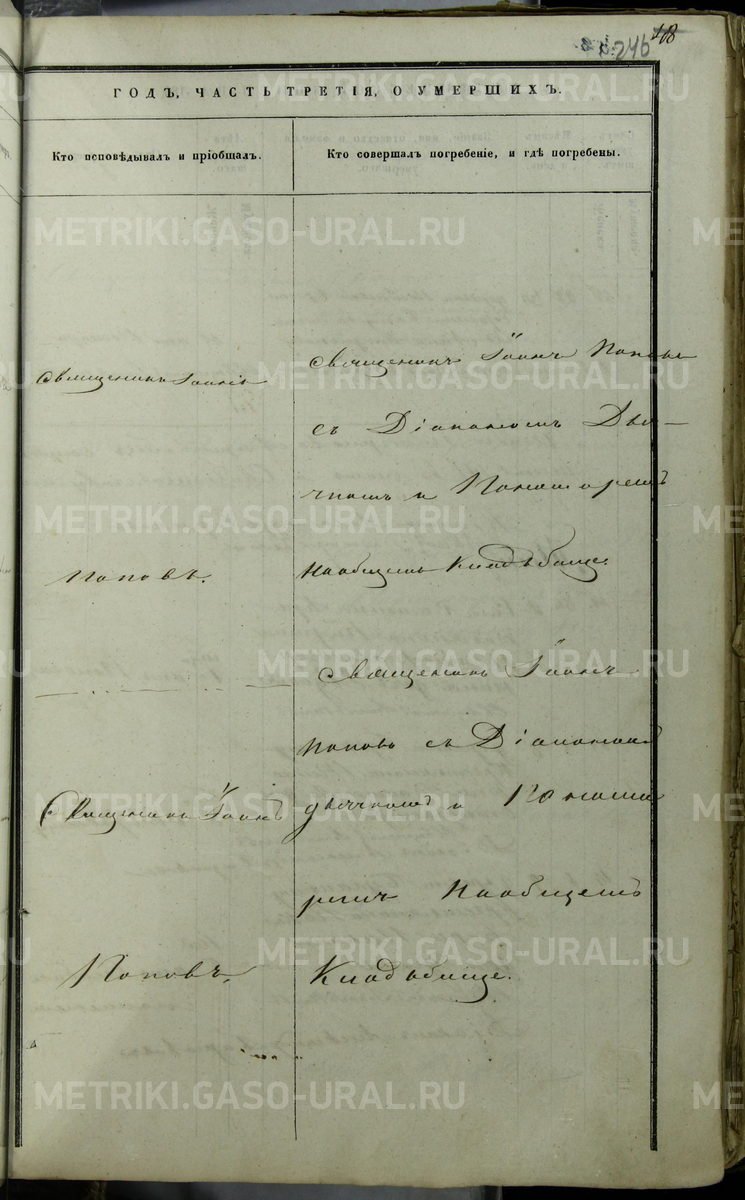 246
ГОДЪ, ЧАСТЬ ТРЕТІЯ, О УМЕРШИХЪ.
Кто исповѣдывалъ и пріобщалъ.
Кто совершалъ погребеніе, и гдѣ погребены.
Священникъ Іоаннъ
Поповъ.
Священникъ Іоаннъ Поповъ
съ Діакономъ Дья-
чкомъ и Пономаремъ
На общемъ Кладъбище.
Священникъ Іоаннъ
Поповъ.
Священникъ Іоаннъ
Поповъ съ Діакономъ
дьячкомъ и Понома
ремъ На общемъ
Кладбище.
METRIKI.GASO-URAL.RU